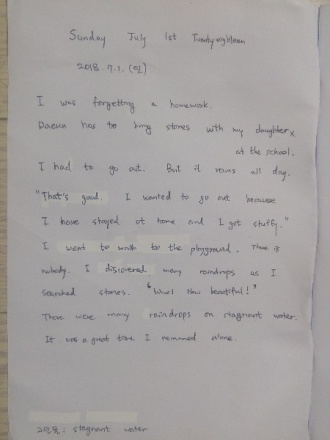 Sunday July 1st Twenty eighteen
2018. 7. 1. (일)
I was forgetting a homework.
Daeun has to bring stones with my daughter x
at the school.
I had to go out. But it rains all day.
"That's good. I wanted to go out because
I have stayed at home and I got stuffy."
I went to walk to the playground. There is
nobody. I discovered many raindrops as I
searched stones. "Wow! How beautiful!"
There were many raindrops on stagnant water.
It was a great time I remained alone.
고인물: stagnant water